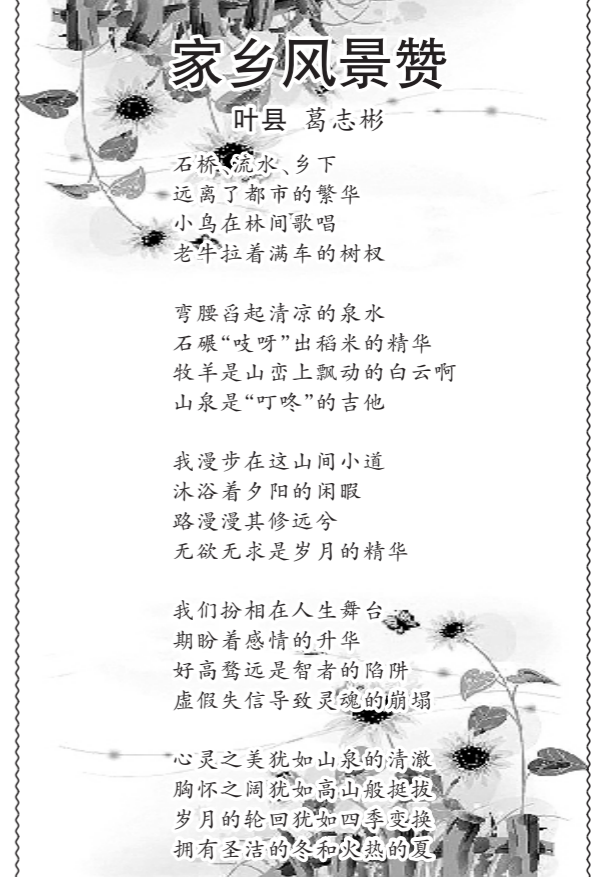 家乡风景赞
叶县 葛志彬
石桥、流水、乡下
远离了都市的繁华
小鸟在林间歌唱
老牛拉着满车的树杈
弯腰舀起清凉的泉水
石碾“吱呀”出稻米的精华
牧羊是山峦上飘动的白云啊
山泉是“叮咚”的吉他
我漫步在这山间小道
沐浴着夕阳的闲暇
路漫漫其修远兮
无欲无求是岁月的精华
我们扮相在人生舞台
期盼着感情的升华
好高骛远是智者的陷阱
虚假失信导致灵魂的崩塌
心灵之美犹如山泉的清澈
胸怀之阔犹如高山般挺拔
岁月的轮回犹如四季变换
拥有圣洁的冬和火热的夏